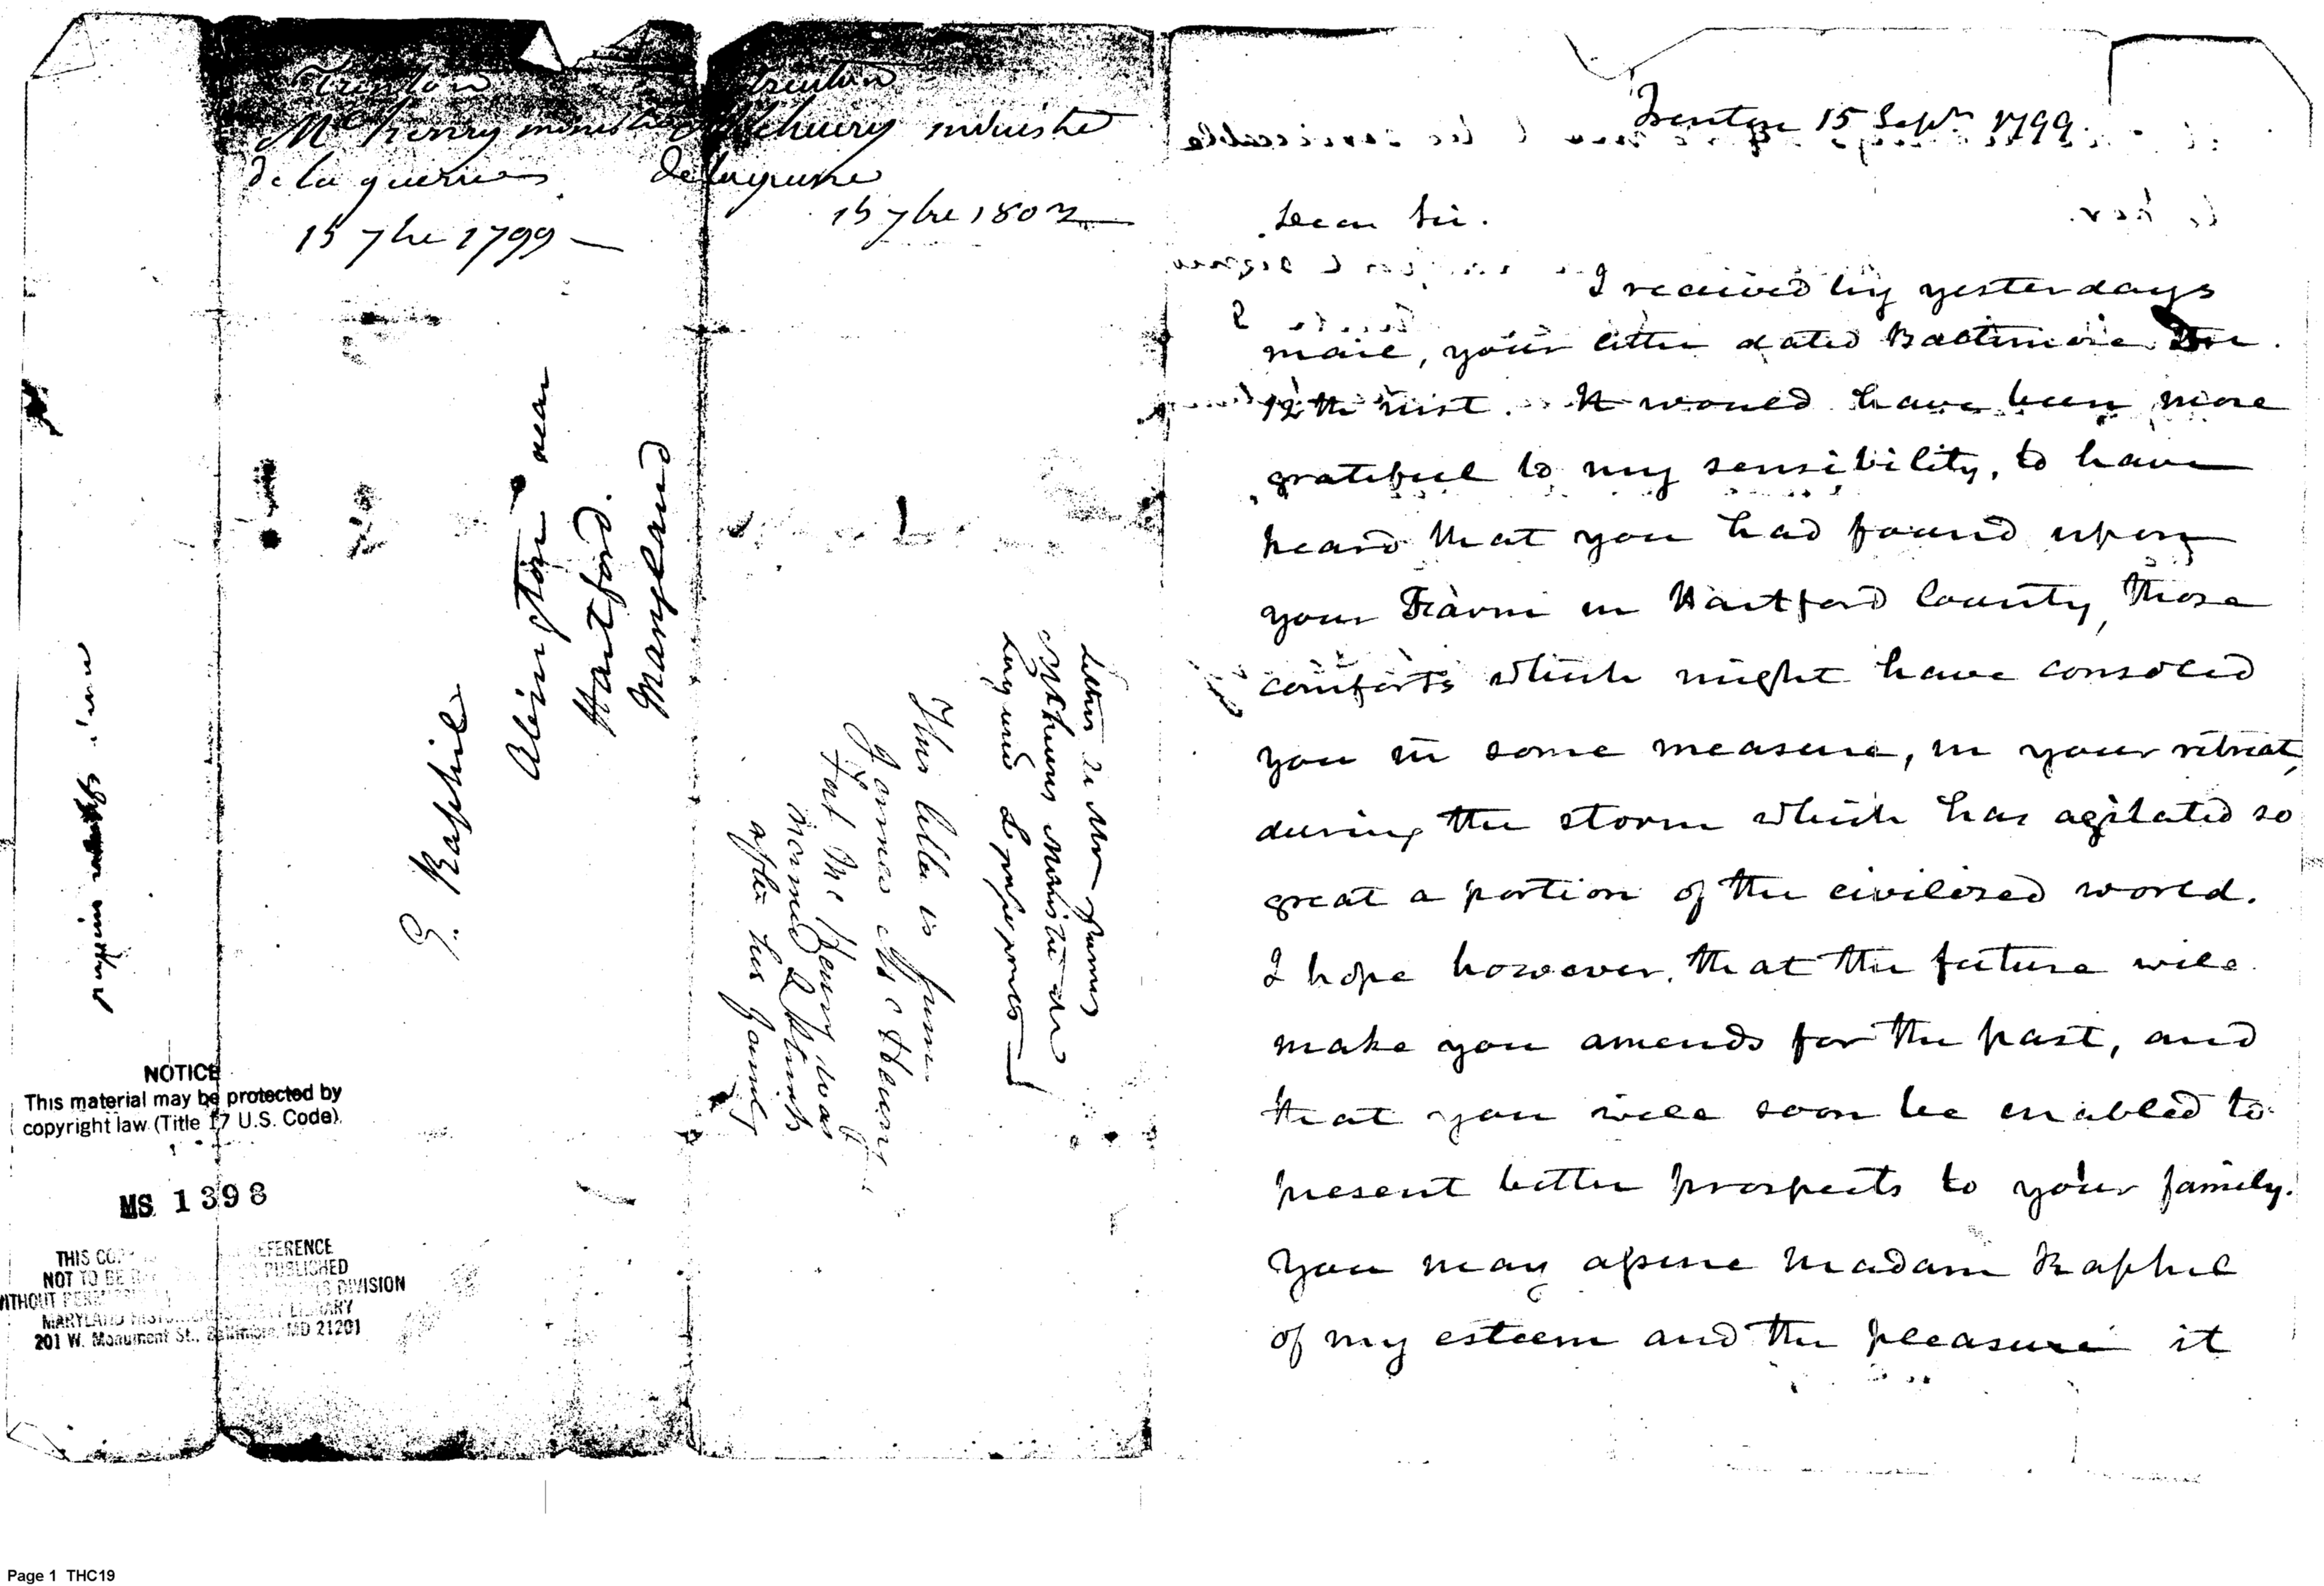 Trenton
McHenry ministre
de la guerre
15 7bre 1799 —
trenton
McHenry ministre
de la guerre
15 7bre 1802
E. Raphiel
Abington near
Hartford.
Maryland
papiers
Lettre de Mr James
McHenry Ministre de
la guerre
This letter is from
James McHenry
Fort McHenry was
named I think
after his family
NOTICE
This material may be protected by
copyright law (Title 17 U.S. Code).
MS 1398
THIS REFERENCE
NOT TO BE PUBLISHED
WITHOUT DIVISION
MARYLAND LIBRARY
201 W. Monument St., Baltimore, MD 21201
Trenton 15 Sepr 1799.
Dear Sir.
I received by yesterdays
mail, your letter dated Baltimore the
12th inst. It would have been more
grateful to my sensibility, to have
heard that you had found upon
your Farm in Hartford County, those
comforts which might have consoled
you in some measure, in your retreat,
during the storm which has agitated so
great a portion of the civilized world.
I hope however, that the future will
make you amends for the past, and
that you will soon be enabled to
present better prospects to your family.
You may assure Madam Raphel
of my esteem and the pleasure it
Page 1 THC19